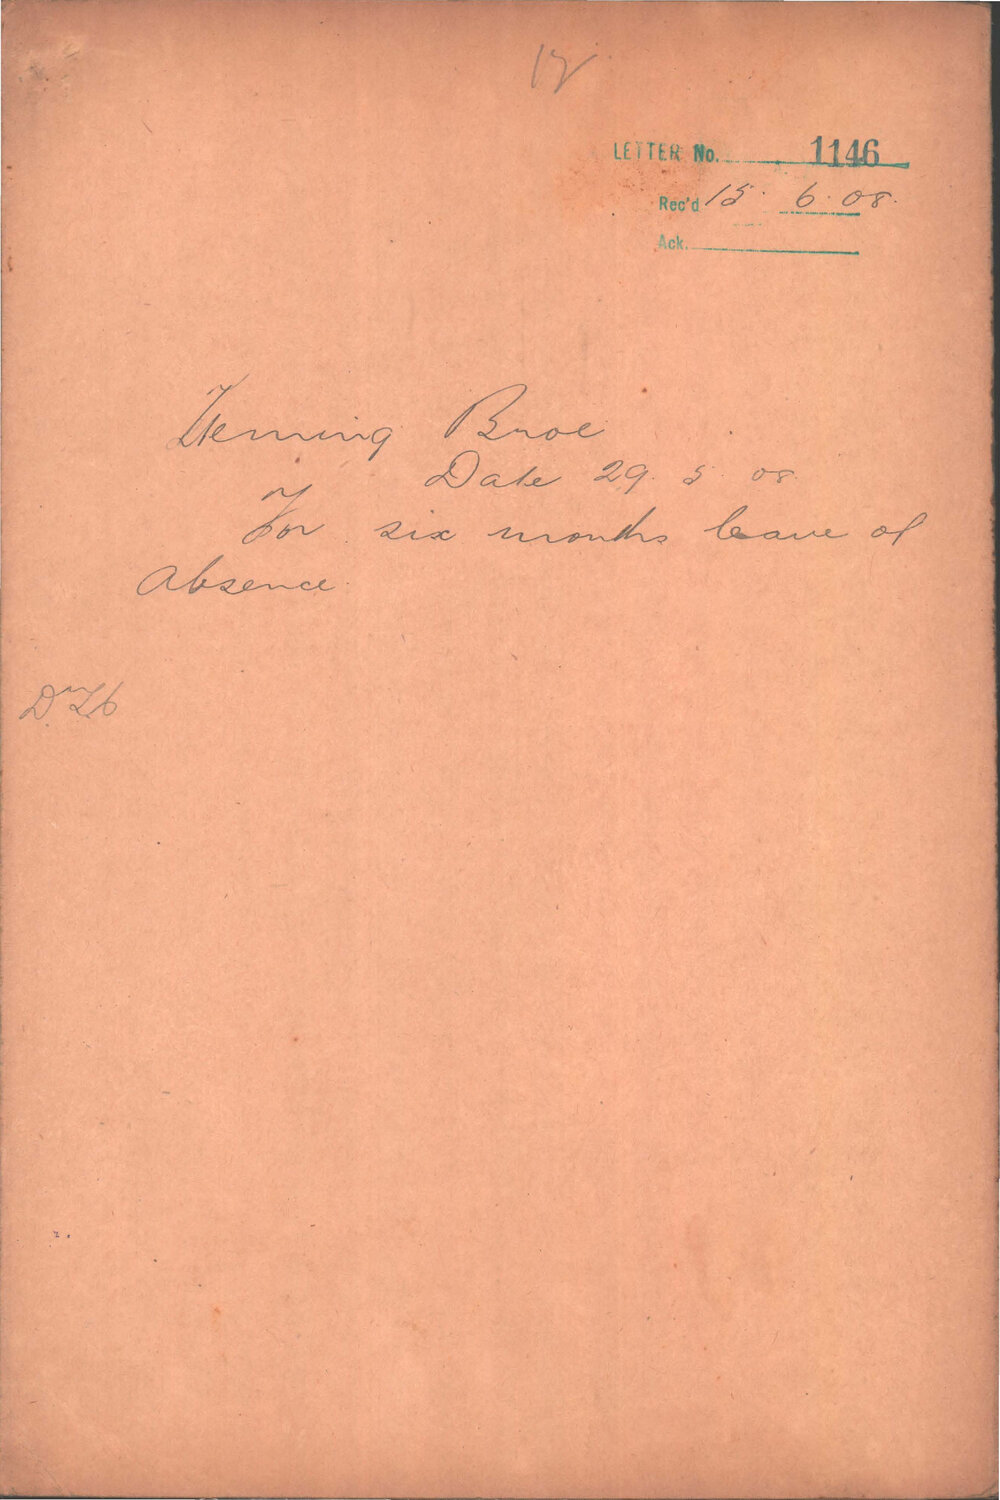 LETTER No. 1146
Rec'd 15. 6. 08.
Ack.
Fleming Broe
Date 29. 5 08
For six months leave of
absence.